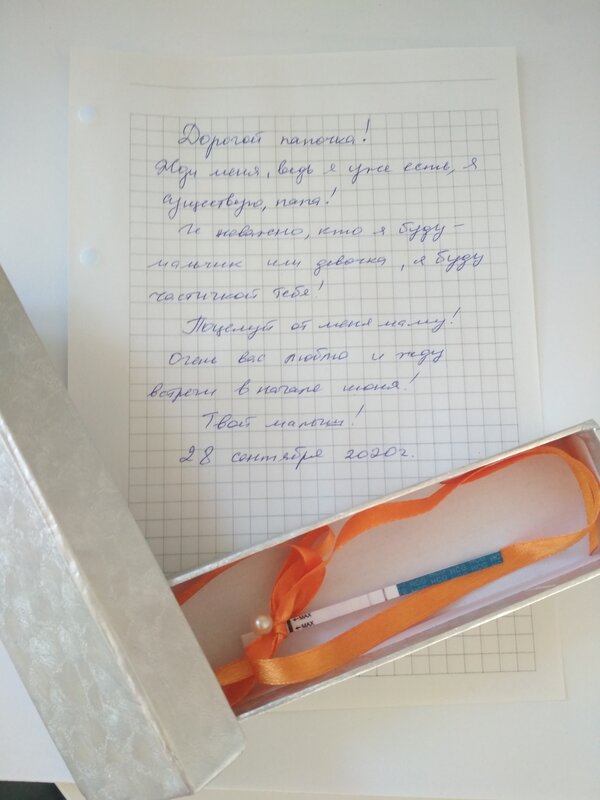 Дорогой папочка!
Жди меня, ведь я уже есть, я
существую, папа!
И неважно, кто я буду -
мальчик или девочка, я буду
частичкой тебя!
Поцелуй от меня маму!
Очень вас люблю и жду
встречи в начале июня!
Твой малыш!
28 сентября 2020г.
HCG HCG HCG HC
←MAX
←MAX